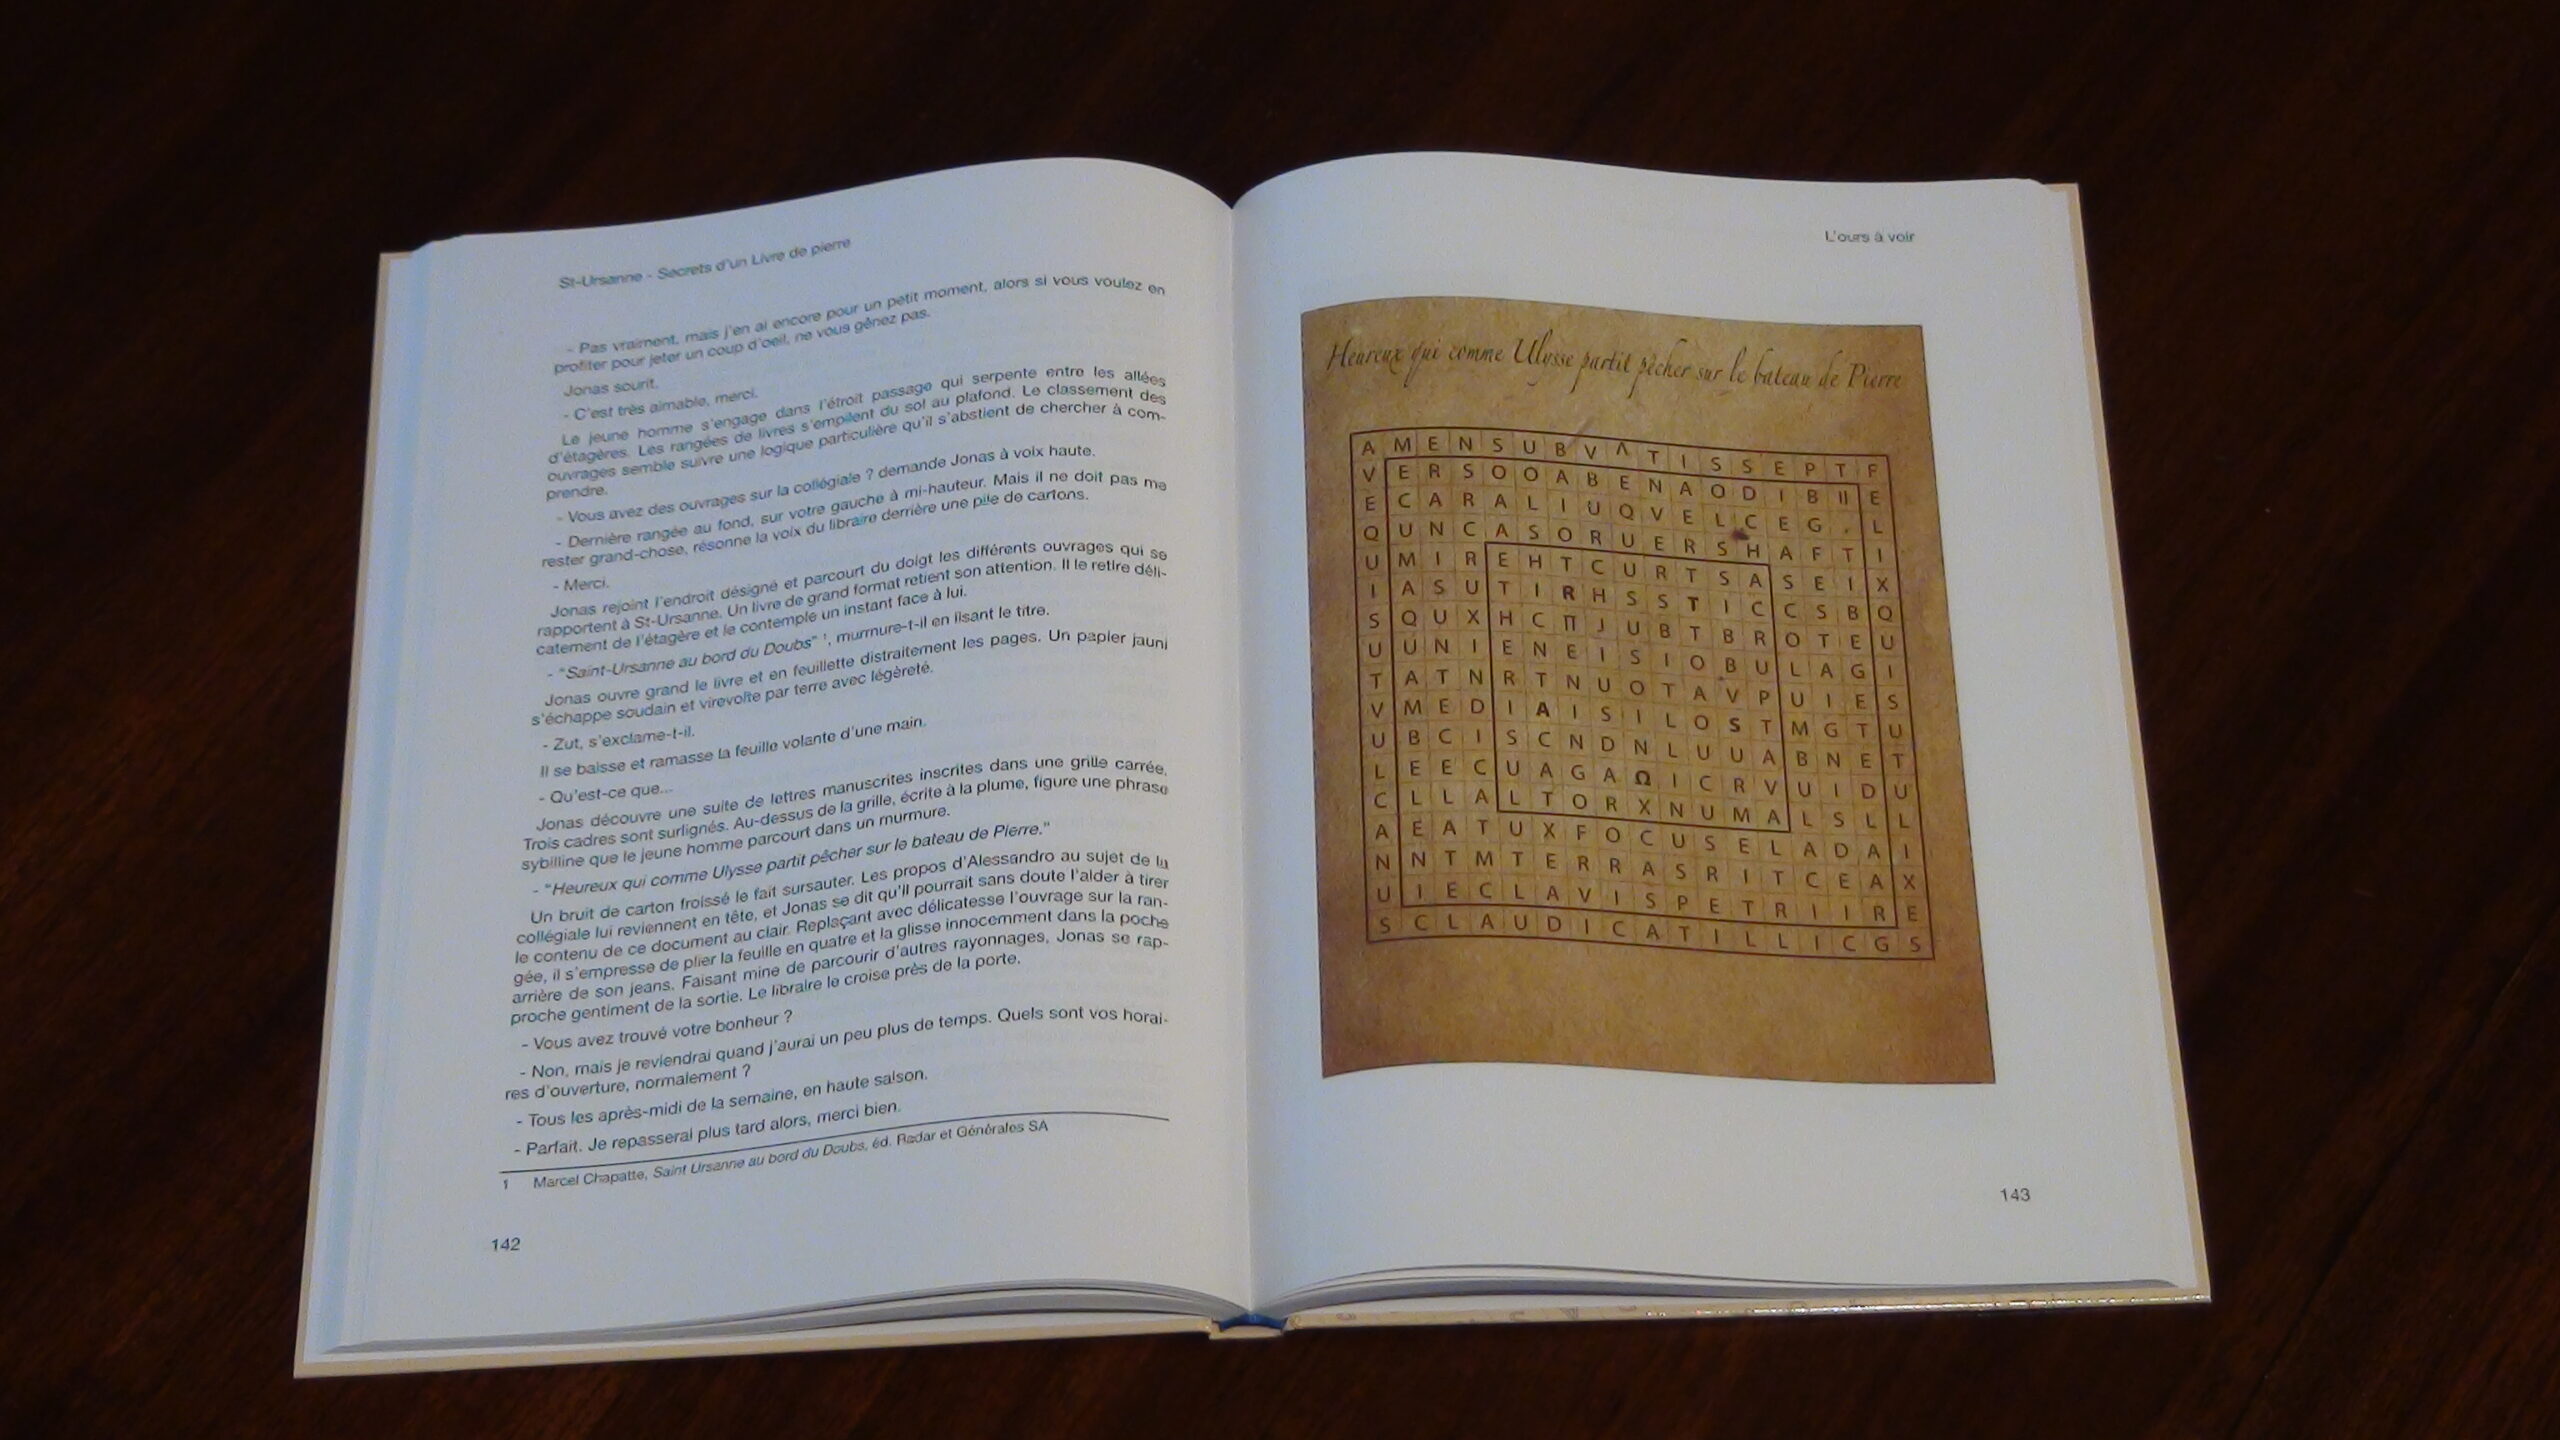 St-Ursanne - Secrets d'un Livre de pierre
- Pas vraiment, mais j'en ai encore pour un petit moment, alors si vous voulez en
profiter pour jeter un coup d'oeil, ne vous gênez pas.
Jonas sourit.
- C'est très aimable, merci.
Le jeune homme s'engage dans l'étroit passage qui serpente entre les allées
d'étagères. Les rangées de livres s'empilent du sol au plafond. Le classement des
ouvrages semble suivre une logique particulière qu'il s'abstient de chercher à com-
prendre.
- Vous avez des ouvrages sur la collégiale ? demande Jonas à voix haute.
- Dernière rangée au fond, sur votre gauche à mi-hauteur. Mais il ne doit pas me
rester grand-chose, résonne la voix du libraire derrière une pile de cartons.
- Merci.
Jonas rejoint l'endroit désigné et parcourt du doigt les différents ouvrages qui se
rapportent à St-Ursanne. Un livre de grand format retient son attention. Il le retire déli-
catement de l'étagère et le contemple un instant face à lui.
- "Saint-Ursanne au bord du Doubs" 1, murmure-t-il en lisant le titre.
Jonas ouvre grand le livre et en feuillette distraitement les pages. Un papier jauni
s'échappe soudain et virevolte par terre avec légèreté.
- Zut, s'exclame-t-il.
Il se baisse et ramasse la feuille volante d'une main.
- Qu'est-ce que...
Jonas découvre une suite de lettres manuscrites inscrites dans une grille carrée.
Trois cadres sont surlignés. Au-dessus de la grille, écrite à la plume, figure une phrase
sybilline que le jeune homme parcourt dans un murmure.
- "Heureux qui comme Ulysse partit pêcher sur le bateau de Pierre."
Un bruit de carton froissé le fait sursauter. Les propos d'Alessandro au sujet de la
collégiale lui reviennent en tête, et Jonas se dit qu'il pourrait sans doute l'aider à tirer
le contenu de ce document au clair. Replaçant avec délicatesse l'ouvrage sur la ran-
gée, il s'empresse de plier la feuille en quatre et la glisse innocemment dans la poche
arrière de son jeans. Faisant mine de parcourir d'autres rayonnages, Jonas se rap-
proche gentiment de la sortie. Le libraire le croise près de la porte.
- Vous avez trouvé votre bonheur ?
- Non, mais je reviendrai quand j'aurai un peu plus de temps. Quels sont vos horai-
res d'ouverture, normalement ?
- Tous les après-midi de la semaine, en haute saison.
- Parfait. Je repasserai plus tard alors, merci bien.
1 Marcel Chapatte, Saint Ursanne au bord du Doubs, éd. Radar et Générales SA
142
L'ours à voir
Heureux qui comme Ulysse partit pêcher sur le bateau de Pierre
A M E N S U B V Λ T I S S E P T F
V E R S O O A B E N A O D I B II E
E C A R A L I U Q V E L C E G . L
Q U N C A S O R U E R S H A F T I
U M I R E H T C U R T S A S E I X
I A S U T I R H S S T I C C S B Q
S Q U X H C Π J U B T B R O T E U
U U N I E N E I S I O B U L A G I
T A T N R T N U O T A V P U I E S
V M E D I A I S I L O S T M G T U
U B C I S C N D N L U U A B N E T
L E E C U A G A Ω I C R V U I D U
C L L A L T O R X N U M A L S L L
A E A T U X F O C U S E L A D A I
N N T M T E R R A S R I T C E A X
U I E C L A V I S P E T R I I R E
S C L A U D I C A T I L L I C G S
143